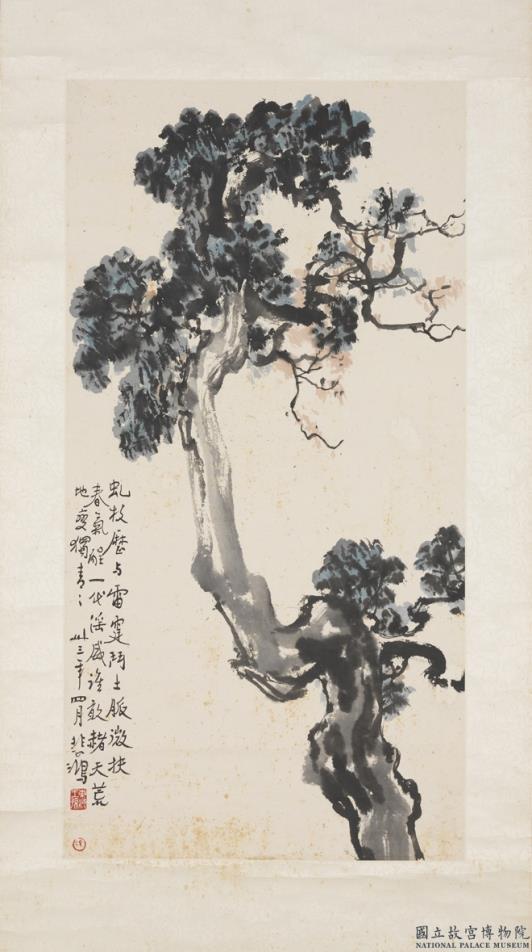 虬枝歷與雷霆鬥土脈微挾
春氣醒一代淫威誰敢赭天荒
地變獨青〻 卅三年四月 悲鴻
國立故宮博物院
NATIONAL PALACE MUSEUM